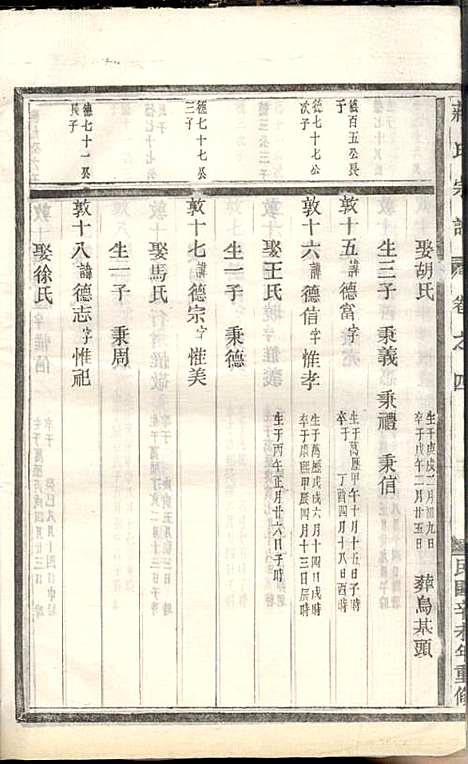 蔣氏宗譜 卷之四 民國辛未年重修
娶胡氏 生于庚戌二月卅九日 卒于戊午二月廿五日 葬烏基頭
生三子 秉義 秉禮 秉信
德百五公長子
敦十五 諱德富 字 生于萬歷甲午十月十五日子時 卒于丁酉四月十八日酉時
德七十七公次子
敦十六 諱德信 字惟孝 生于萬歷戊戌六月十四日戌時 卒于康熙甲辰四月十三日戌時
娶王氏 生于丙午正月廿六日子時
生一子 秉德
德七十七公三子
敦十七 諱德宗 字惟美
娶馬氏
生一子 秉周
德七十一公長子
敦十八 諱德志 字惟祀
娶徐氏